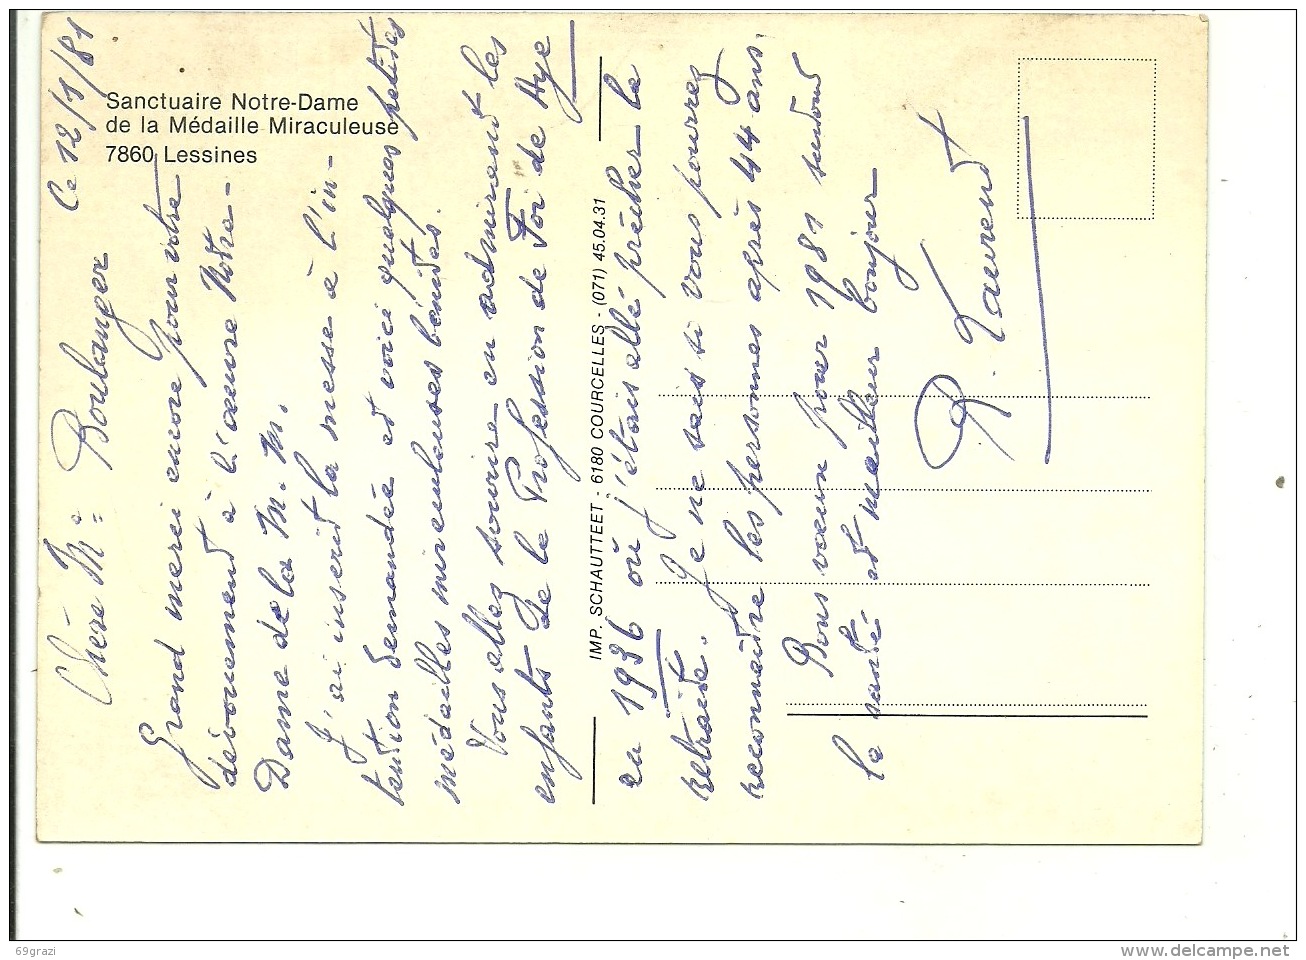 Sanctuaire Notre-Dame
de la Médaille Miraculeuse
7860 Lessines
IMP. SCHAUTTEET - 6180 COURCELLES - (071) 45.04.31
Le 12/1/81
Chère Me Boulanger
Grand merci encore pour votre
dévouement à l'œuvre Notre-
Dame de la M. M.
J'ai inscrit la messe à l'in-
tention demandée et voici quelques petites
médailles miraculeuses bénites.
Vous allez sourire en admirant les
enfants de la Profession de Foi de Aye
en 1936 où j'étais allé prêcher la
retraite. Je ne sais si vous pourrez
reconnaître les personnes après 44 ans.
Bons vœux pour 1981 surtout
la santé et meilleur bonjour
P. Laurent
69grazi
delcampe.net